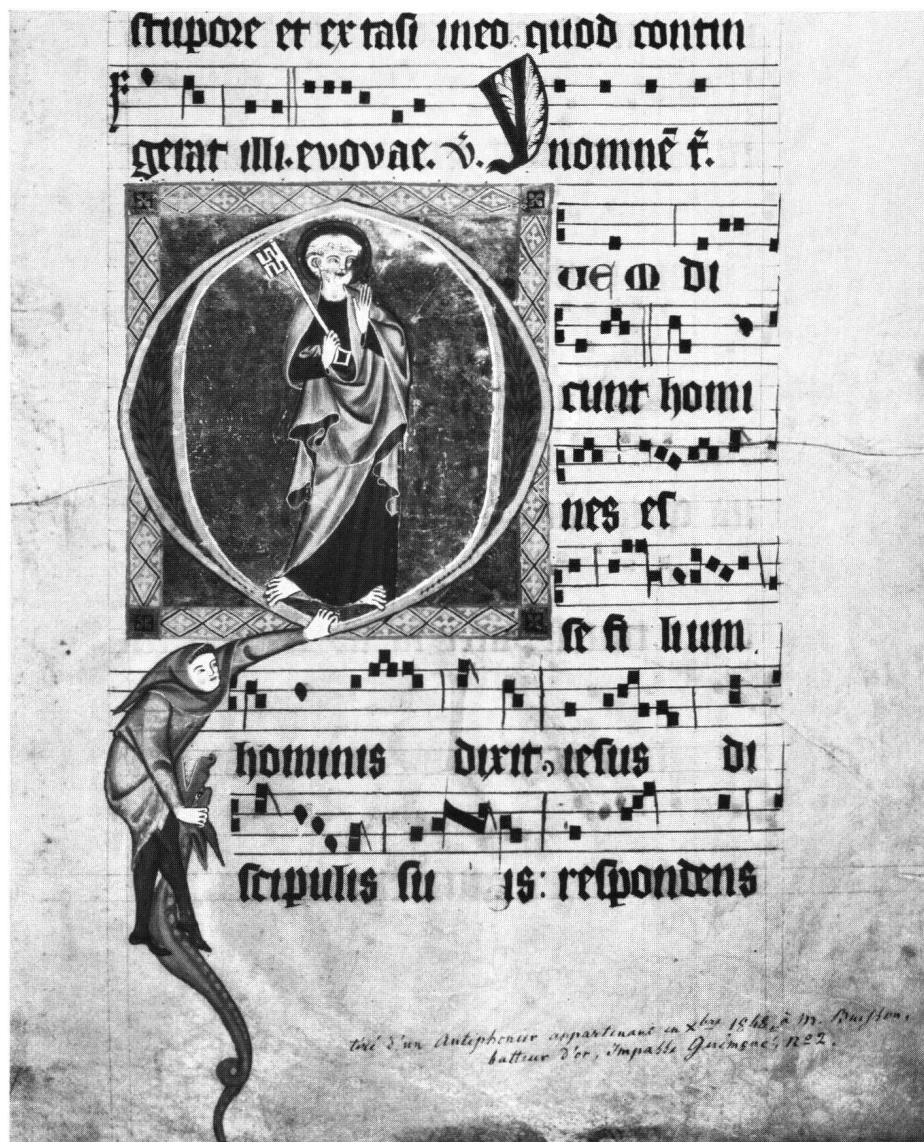 stupore et extasi in eo quod contin
gerat illi. evovae. V. In nomnē t̄.
Quem di
cunt homi
nes es
se fi lium
hominis dixit, iesus di
scipulis su is: respondens
tiré d'un Antiphonier appartenant en Xbre 1848, à M. Buisson,
batteur d'or, Impasse Guéménée, N° 2.